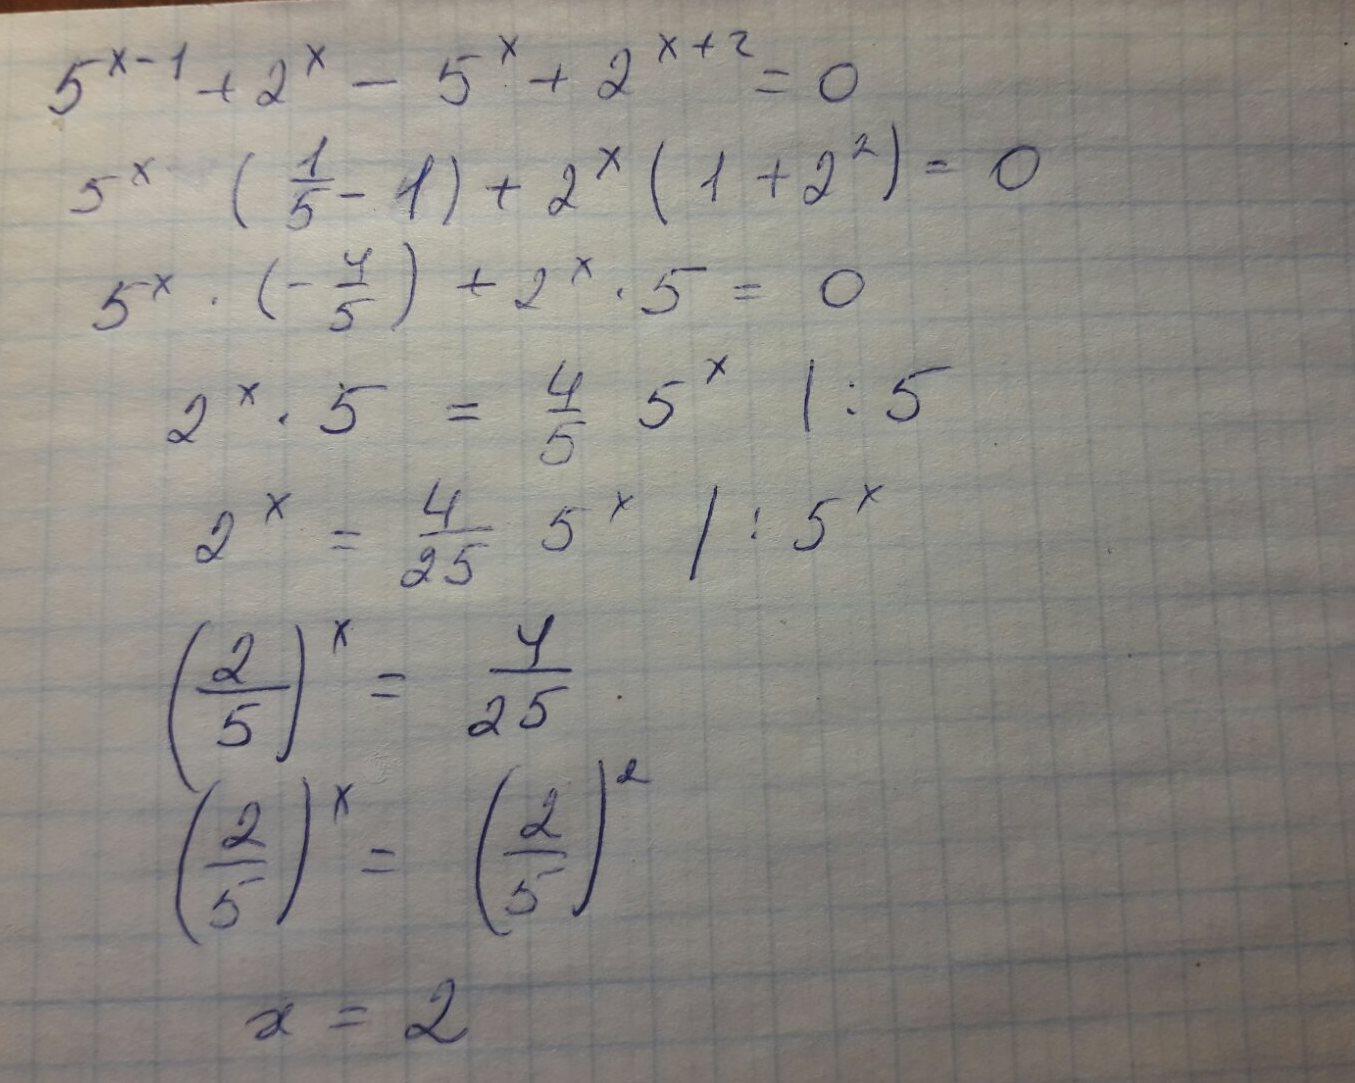 5^{x-1} + 2^x - 5^x + 2^{x+2} = 0
5^x (\frac{1}{5} - 1) + 2^x (1 + 2^2) = 0
5^x · (-\frac{4}{5}) + 2^x · 5 = 0
2^x · 5 = \frac{4}{5} 5^x | : 5
2^x = \frac{4}{25} 5^x | : 5^x
(\frac{2}{5})^x = \frac{4}{25}
(\frac{2}{5})^x = (\frac{2}{5})^2
x = 2